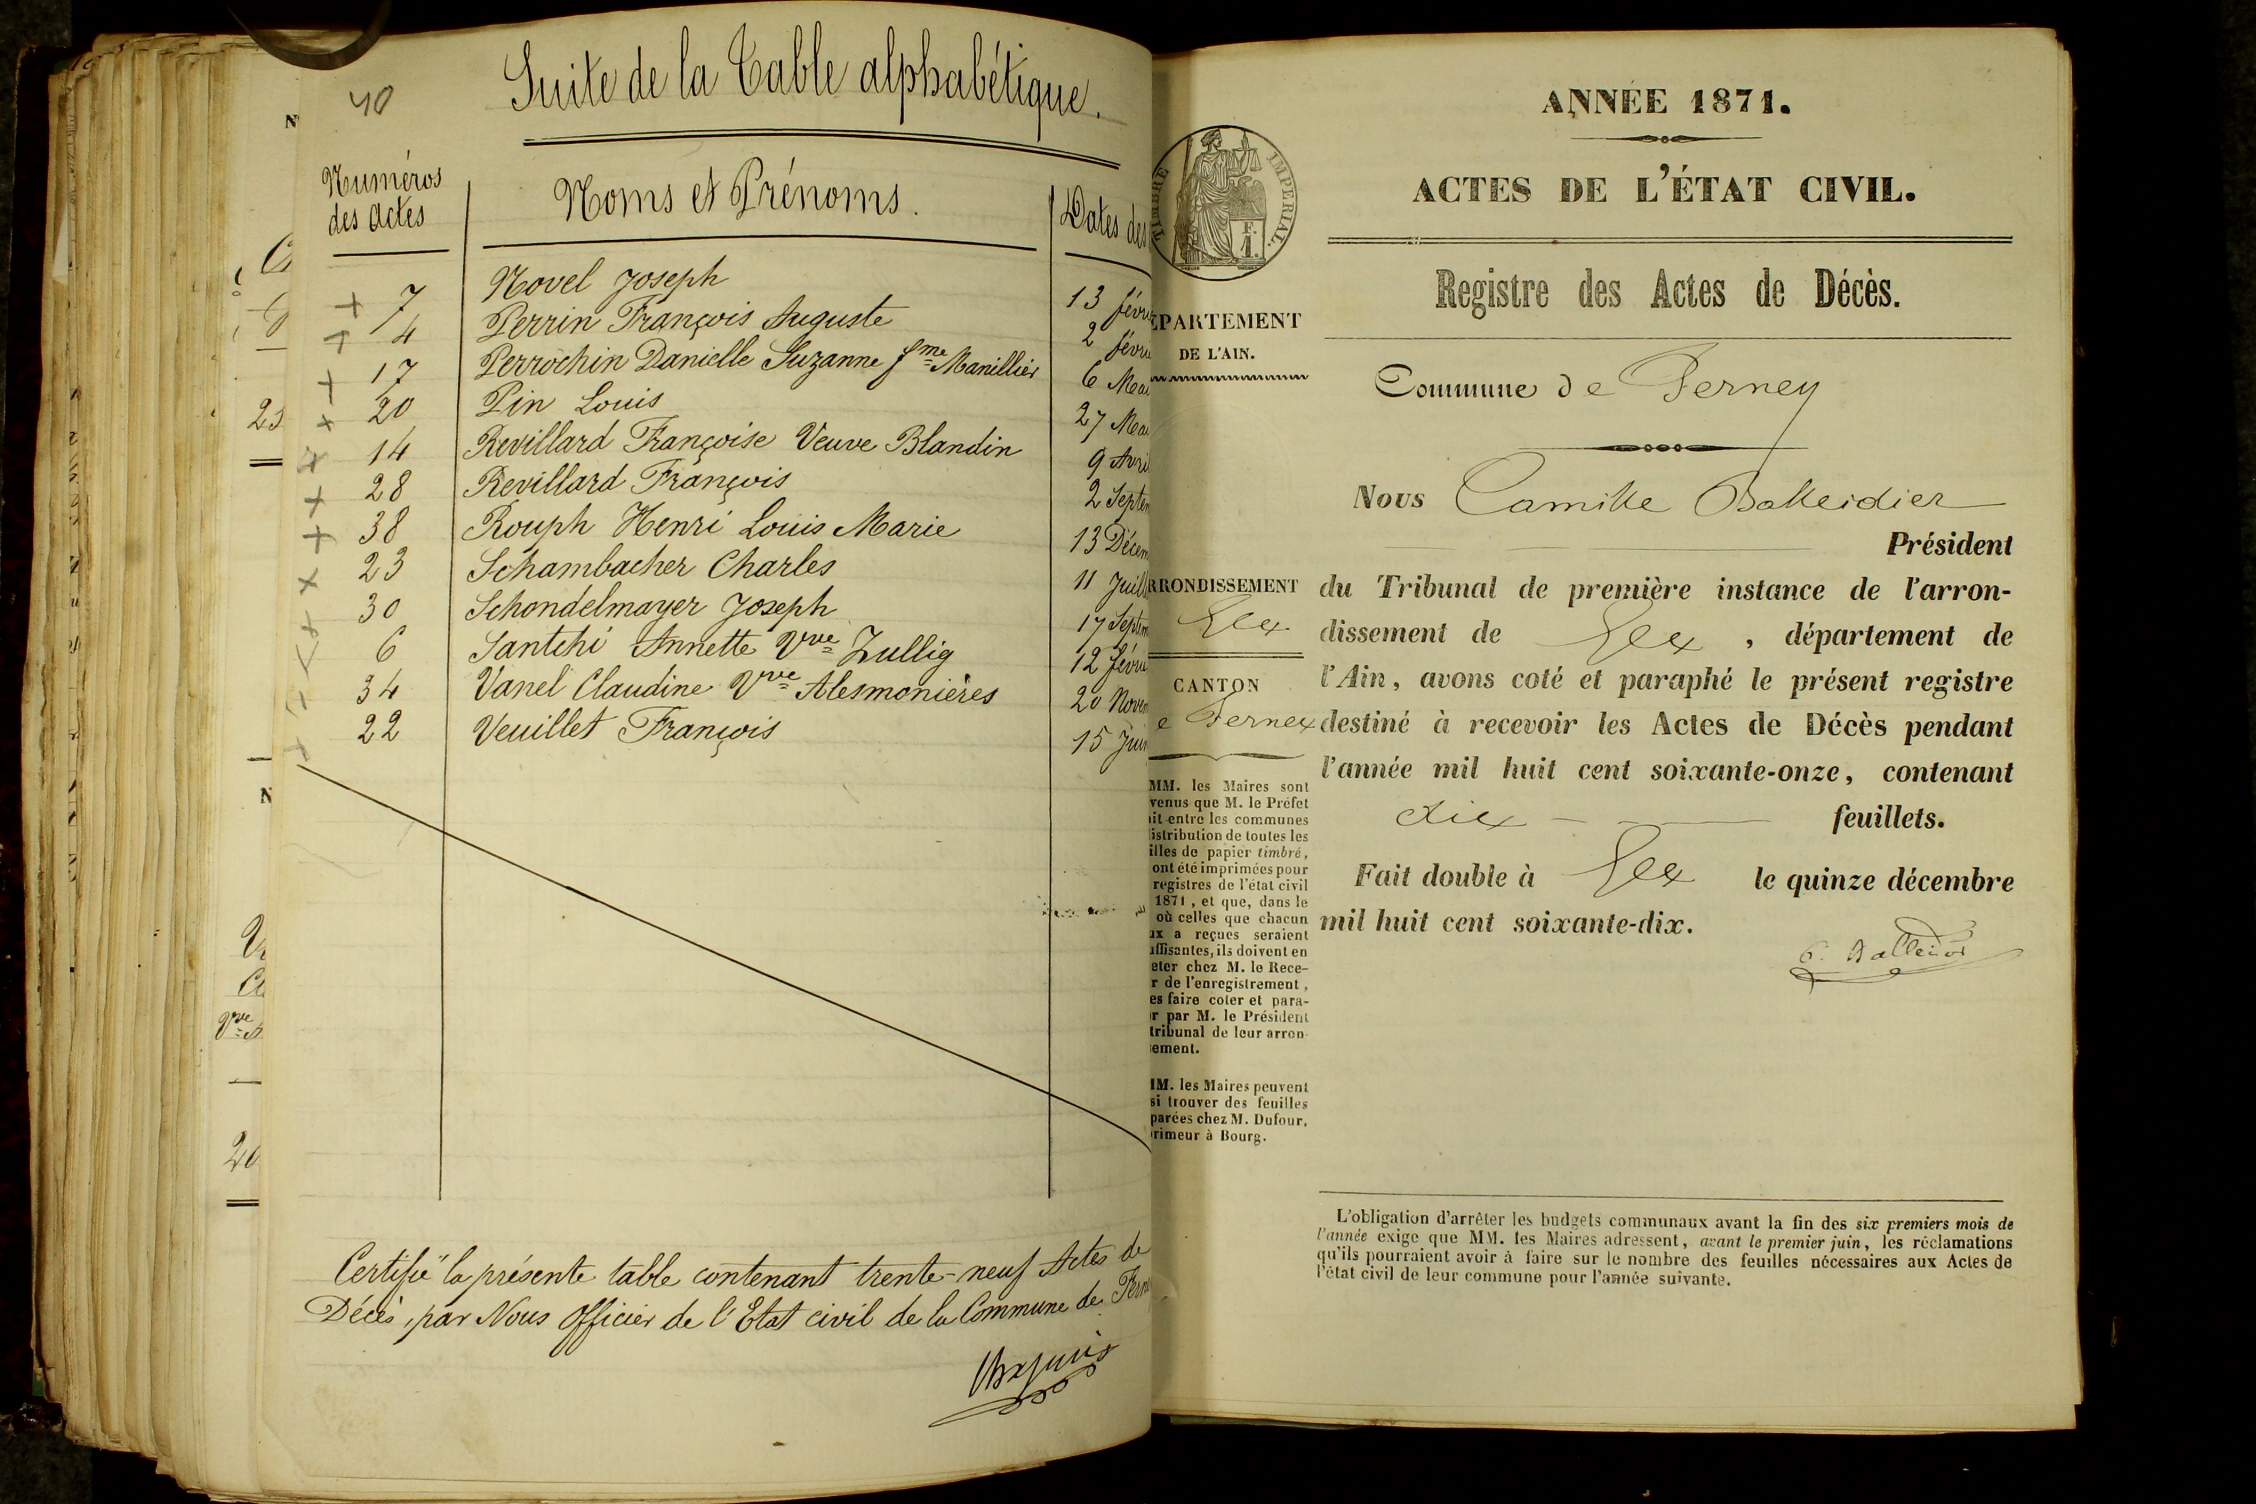 40
Suite de la Table alphabétique.
Numéros
des actes
Noms et Prénoms.
Dates des
7 Novel Joseph 13 févri
4 Perrin François Auguste 2 févri
17 Perrochin Danielle Suzanne fme Manillier 6 Mai
20 Pin Louis 27 Mai
14 Revillard Françoise Veuve Blandin 9 Avril
28 Revillard François 2 Septem
38 Rouph Henri Louis Marie 13 Décem
23 Schambacher Charles 11 Juill
30 Schondelmayer Joseph 17 Septem
6 Santchi Annette Vve Zullig 12 févri
34 Vanel Claudine Vve Alesmonières 20 Novem
22 Veuillet François 15 Juin
Certifié la présente table contenant trente-neuf Actes de
Décès, par Nous Officier de l'Etat civil de la Commune de Fern
ANNÉE 1871.
ACTES DE L'ÉTAT CIVIL.
Registre des Actes de Décès.
TIMBRE IMPERIAL.
F.
1.
EPARTEMENT
DE L'AIN.
Commune de Ferney
Nous Camille Balleidier
Président
RRONDISSEMENT
Gex
du Tribunal de première instance de l'arron-
dissement de Gex, département de
l'Ain, avons coté et paraphé le présent registre
destiné à recevoir les Actes de Décès pendant
l'année mil huit cent soixante-onze, contenant
dix feuillets.
Fait double à Gex le quinze décembre
mil huit cent soixante-dix.
CANTON
e Ferney
MM. les Maires sont
venus que M. le Préfet
ait entre les communes
istribution de toutes les
illes de papier timbré,
ont été imprimées pour
registres de l'état civil
1871, et que, dans le
où celles que chacun
ux a reçues seraient
uffisantes, ils doivent en
eter chez M. le Rece-
r de l'enregistrement,
es faire coter et para-
r par M. le Président
tribunal de leur arron-
ement.
IM. les Maires peuvent
si trouver des feuilles
parées chez M. Dufour,
rimeur à Bourg.
L'obligation d'arrêter les budgets communaux avant la fin des six premiers mois de
l'année exige que MM. les Maires adressent, avant le premier juin, les réclamations
qu'ils pourraient avoir à faire sur le nombre des feuilles nécessaires aux Actes de
l'état civil de leur commune pour l'année suivante.